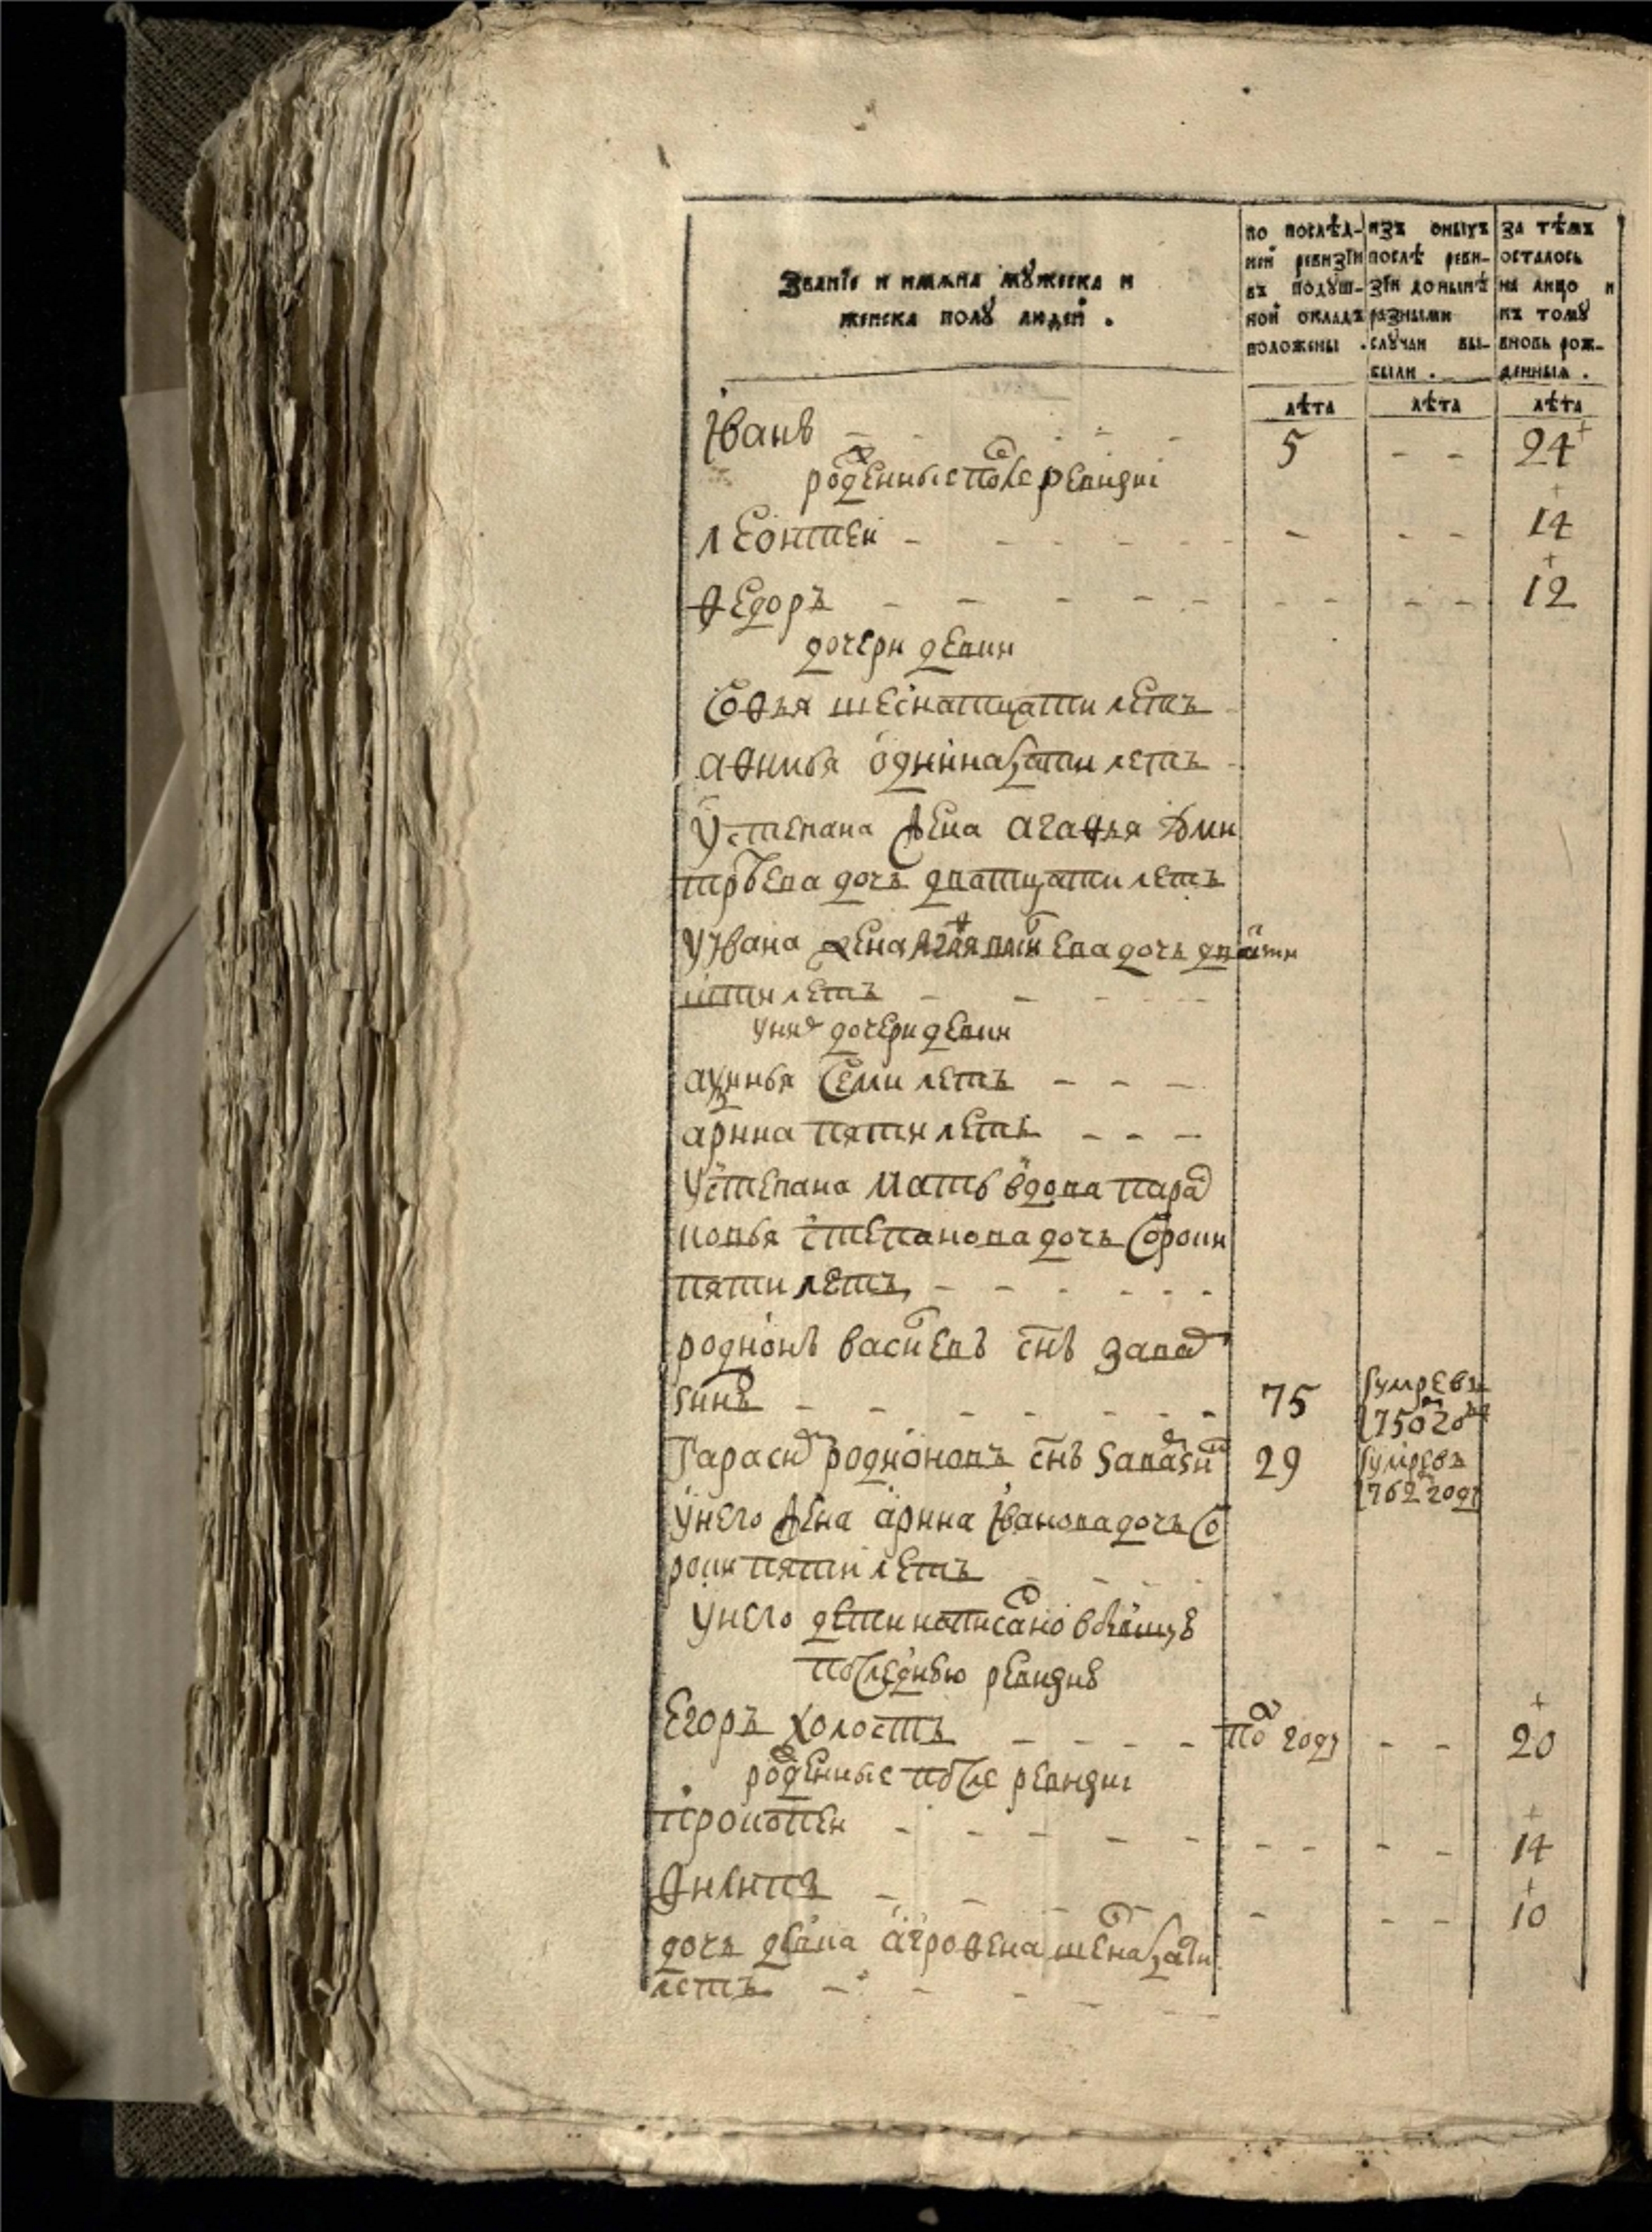 Званїе и имѧна мꙋжеска и
женска полꙋ людей .
по послѣд-
ней ревизїи
въ подꙋш-
ной окладъ
положены .
изъ оныхъ
послѣ реви-
зїи донынѣ
разными
слꙋчаи вы-
были .
за тѣмъ
осталось
на лицо и
къ томꙋ
вновь рож-
денныя .
лѣта лѣта лѣта
Іванъ - - - 5 - - 24
рожденные после ревизиі
леонтеи - - - - - - 14
ѳедоръ - - - - - - 12
дочери девки
Соѳья шеснатцати летъ
аѳимья одиннатцати летъ
У степана жена агаѳья дми
трѣева дочь дватцати летъ
У Івана жена дочь
летъ - - -
У них дочери девки
аксинья Семи летъ - - -
арина пяти летъ - - -
У степана мать вдова пара
ковья степанова дочь Сорокъ
пяти летъ - - -
родионъ василевъ снъ
75 умре въ
1750 году
Тарасъ родионовъ снъ 29 умре въ
1762 году
У него жена арина Іванова дочь Со
рокъ пяти летъ
У него дети написанои
последнюю ревизию
Егоръ холостъ - - - - по году - - 20
рожденные после ревизиі
прокоѳеи - - - - - - 14
Ѳилипъ - - - - - - 10
дочь девка агроѳена
летъ - - -